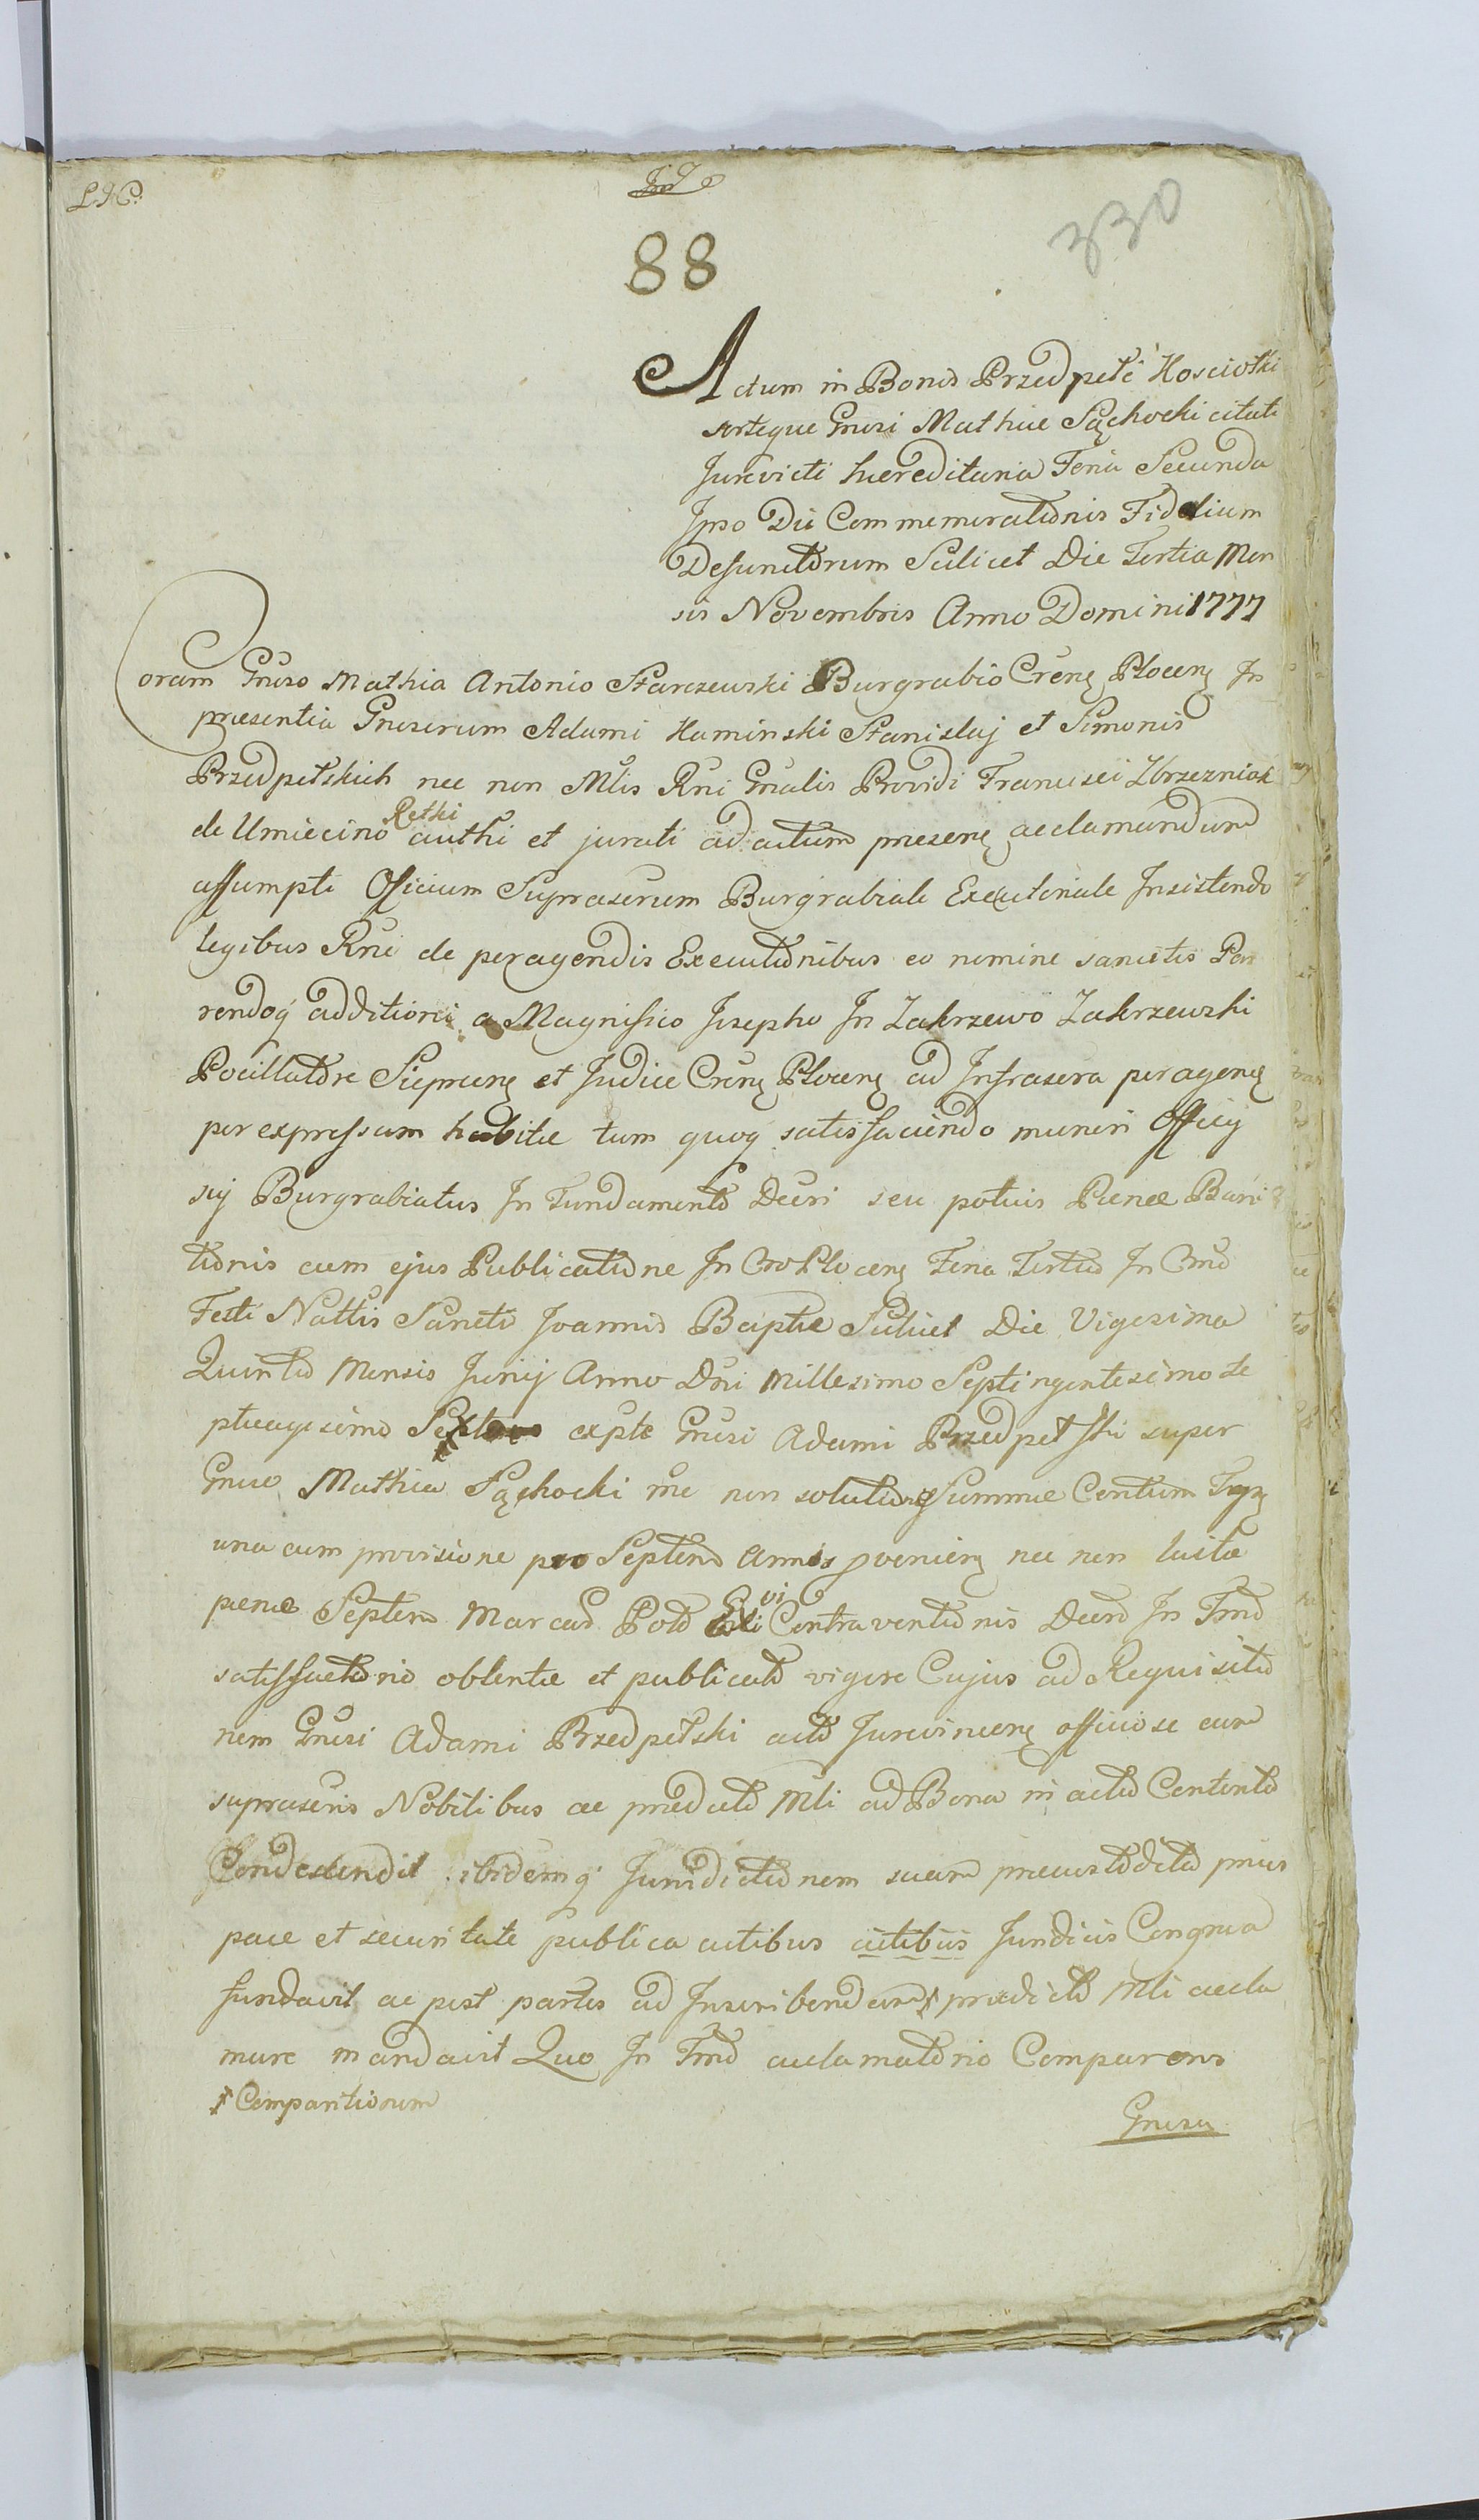 88
330
Actum in Bonis Przedpełć Kosciołki
sorteque Gnrsi Mathiae Sąchocki citati
Jurevicti haereditaria Feria Secunda
Ipso Die Commemorationis Fidelium
Defunctorum Scilicet Die Tertia Men
sis Novembris Anno Domini 1777
Coram Gnrso Mathia Antonio Starczewski Burgrabio Crenę Plocenę In
praesentia Gnrsorum Adami Kaminski Stanislaj et Simonis
Przedpełskich nec non Mlis Rni Gnralis Providi Francisci Zbrzezniak
de Umiecino Rethi authi et jurati ad actum praesenę acclamandum
assumpti Officium Suprascrum Burgrabiale Executoriale Insistendo
legibus Rni de peragendis Executionibus eo nomine sancitis Pa
rendoq additioni a Magnifico Josepho In Zakrzewo Zakrzewski
Pocillatore Siepncenę et Judice Crenę Plocenę ad Infrascra peragenę
per expressum habitae tum quoq satisfaciendo muneri Officij
sij Burgrabiatus In Fundamento Decri seu potius Paenae Bani
tionis cum ejus Publicatione In Cro Plocenę Feria Tertia In Crno
Festi Nattis Sancti Joannis Baptae Scilicet Die Vigesima
Quinta Mensis Junij Anno Dni Millesimo Septingentesimo Se
ptuagesimo Sexto expte Gnrsi Adami Przedpełski super
Gnrso Mathia Sąchocki rne non solutionis Summae Centum
una cum provisione pro Septem Annis provenienę nec non luitae
paenae Septem Marcas Pol vi Contraventionis Decro In Tmo
satisfactorio oblentae et publicata vigore Cujus ad Requisitio
nem Gnrsi Adami Przedpełski acto Jurevincenę officiose cum
suprascris Nobilibus ac praedicto Mli ad Bona in actu Contenta
Condescendit ibidemq Jurisdictionem suam praecustodita prius
pace et securitate publica actibus actibus Juridicis Congrua
fundavit ac post partes ad Inscribendum praedicto Mli accla
mare mandavit Quo In Tmo acclamatorio Comparens
Comparitiorum
Gnrsu